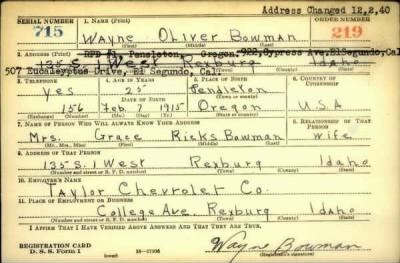 Address Changed 12,2,40
SERIAL NUMBER 1. NAME (Print) ORDER NUMBER
715 Wayne Oliver Bowman 219
(First) (Middle) (Last)
2. ADDRESS (Print) RFD #3 Pendleton, Oregon. 922 Cypress Ave, ElSegundo, Cal
135 S. 1 West Rexburg Idaho
507 Eucaleyptus Drive, El Segundo, Cal.
3. TELEPHONE 4. AGE IN YEARS 5. PLACE OF BIRTH 6. COUNTRY OF CITIZENSHIP
yes 25 Pendleton
DATE OF BIRTH (Town or county)
156 Feb. 7 1915 Oregon U.S.A
(Exchange) (Number) (Mo.) (Day) (Yr.) (State or country)
7. NAME OF PERSON WHO WILL ALWAYS KNOW YOUR ADDRESS 8. RELATIONSHIP OF THAT PERSON
Mrs. Grace Ricks Bowman wife
(Mr., Mrs., Miss) (First) (Middle) (Last)
9. ADDRESS OF THAT PERSON
135 S. 1 West Rexburg Idaho
(Number and street or R. F. D. number) (Town) (County) (State)
10. EMPLOYER'S NAME
Taylor Chevrolet Co.
11. PLACE OF EMPLOYMENT OR BUSINESS
College Ave. Rexburg Idaho
(Number and street or R. F. D. number) (Town) (County) (State)
I AFFIRM THAT I HAVE VERIFIED ABOVE ANSWERS AND THAT THEY ARE TRUE.
REGISTRATION CARD
D. S. S. Form 1 16—17105 Wayne Bowman
(Registrant's signature)